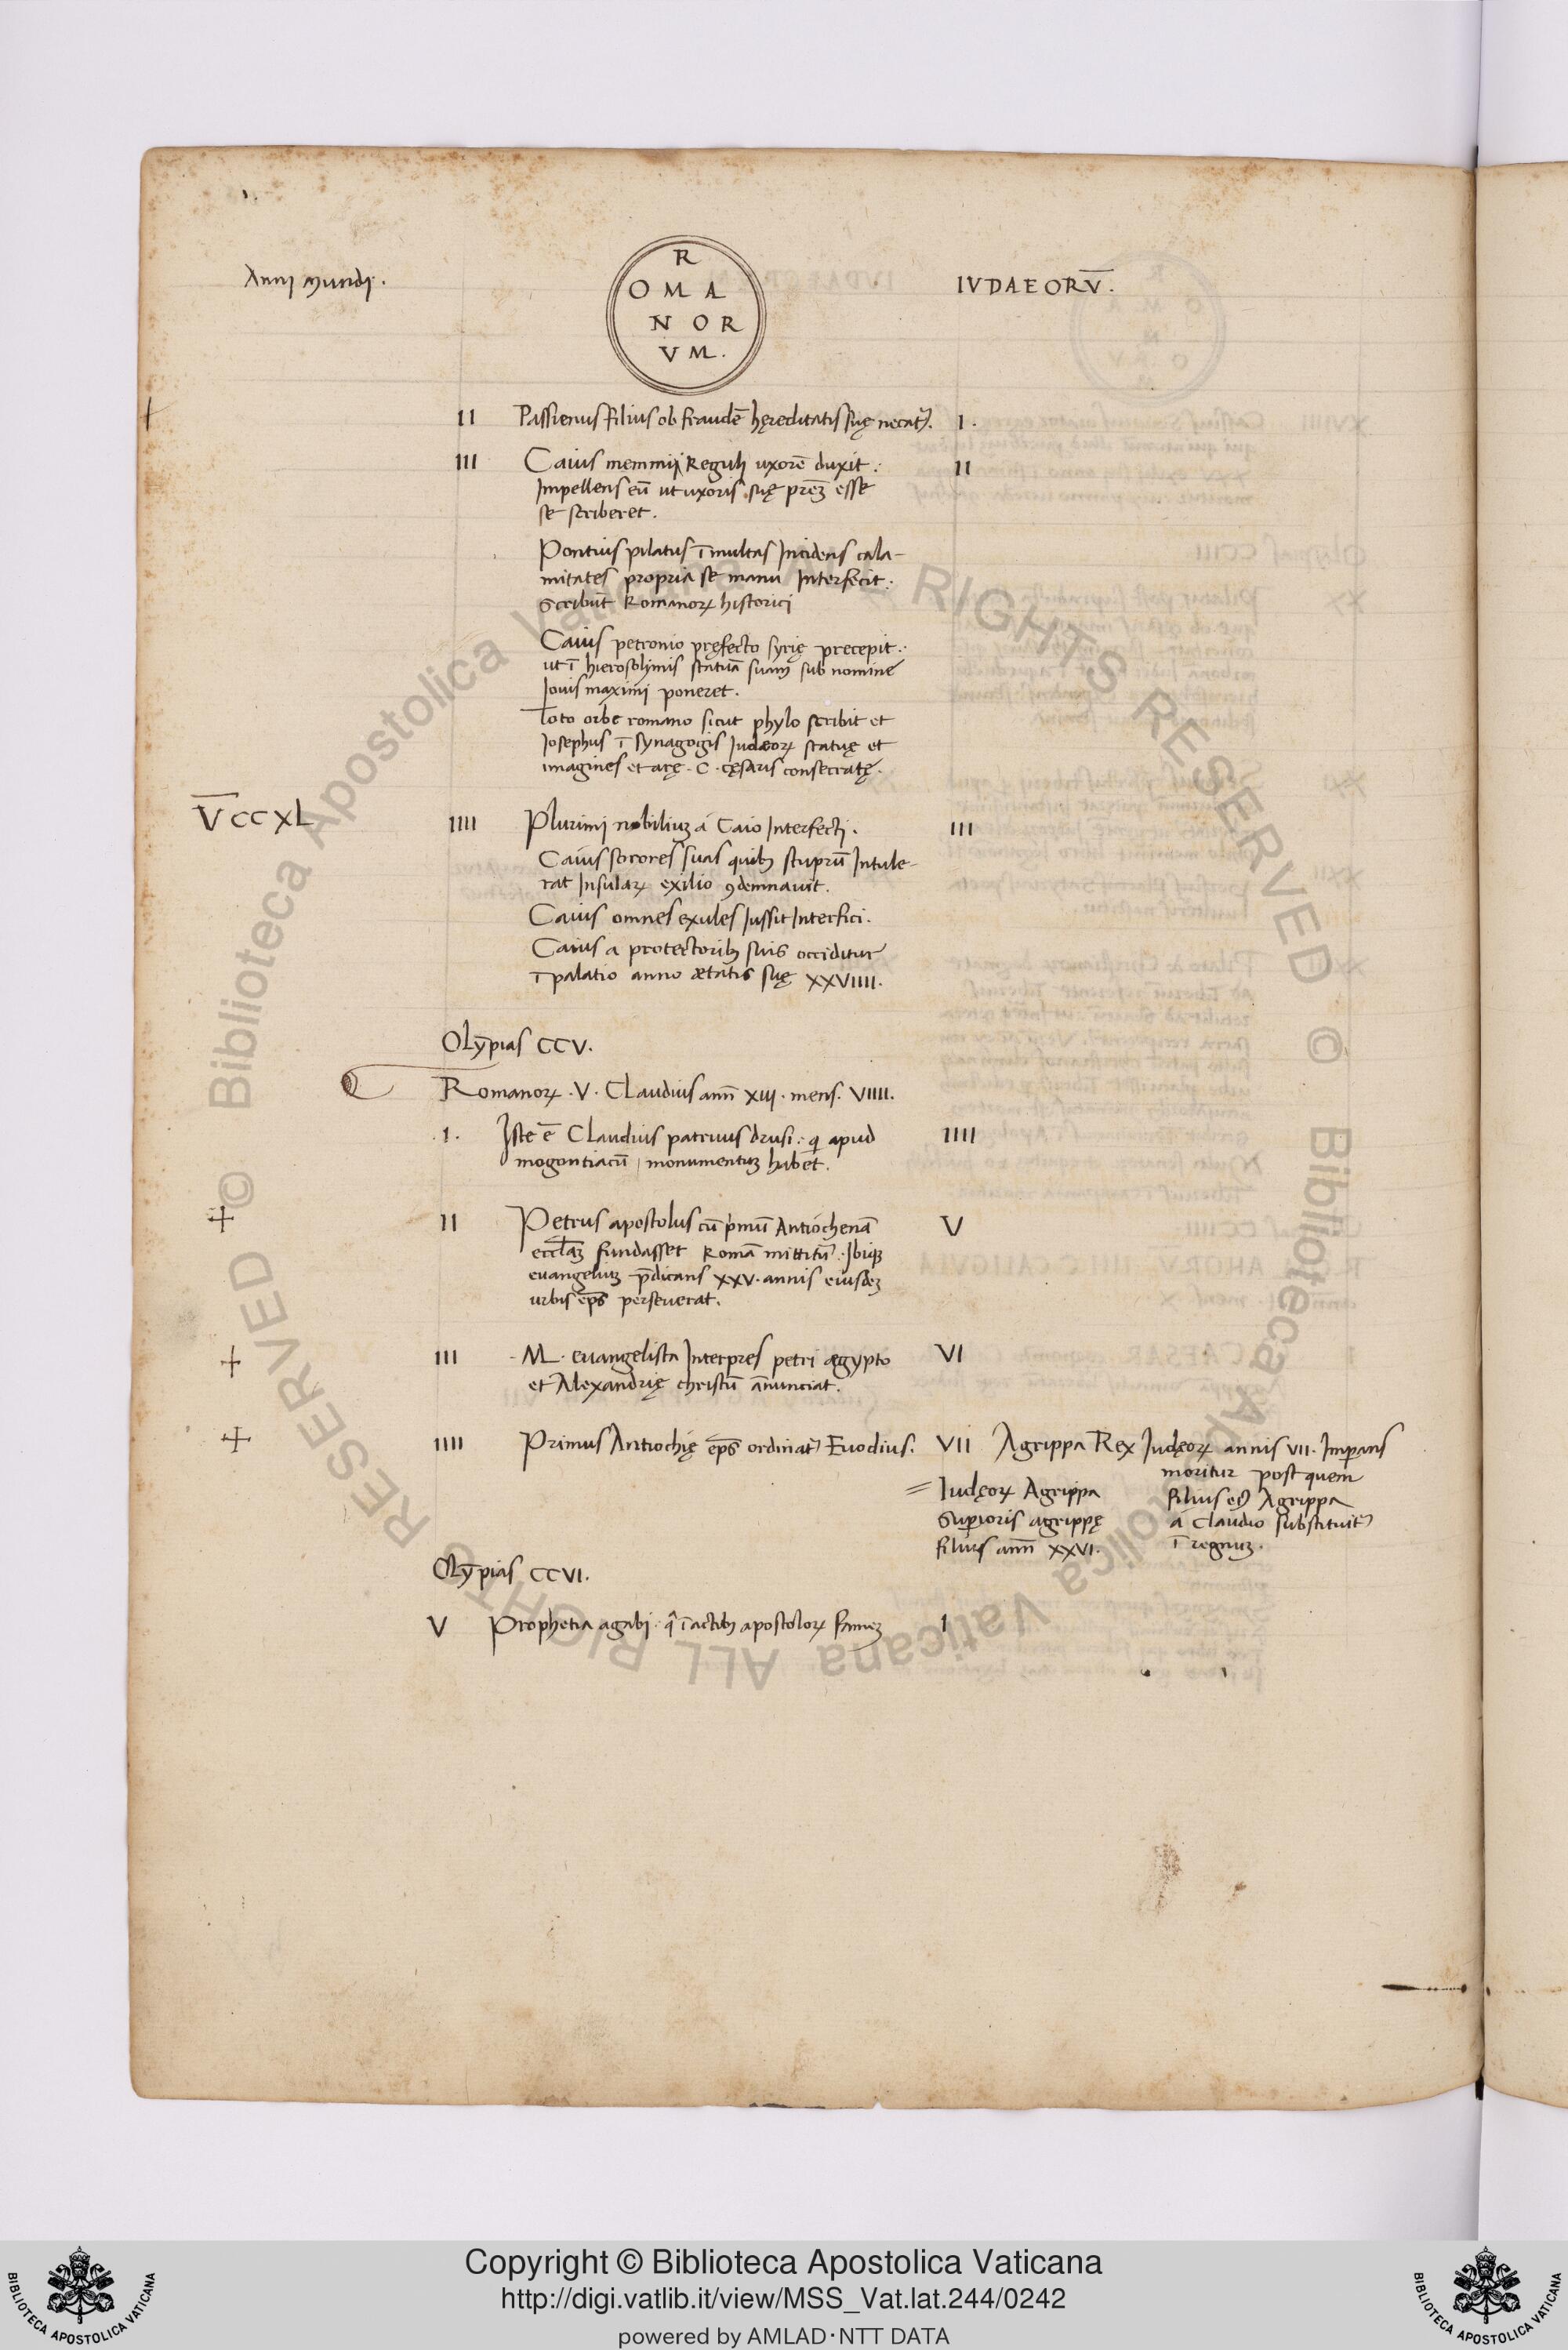 Anni mundi.
R
OMA
NOR
VM.
IVDAEORV̄.
II Passienus filius ob fraudē hęreditatis suę necat᷑. I.
III Caius memmii Reguli uxorē duxit: II
Impellens eū ut uxoris suę p̄rēꝫ esse
se scriberet.
Pontius pilatus ī multas Incidens cala-
mitates propria se manu Interfecit:
scribūt Romanoꝝ historici
Caius petronio pręfecto syrię precepit:
ut ī hierosolimis statuā suam sub nomine
Jouis maximi poneret.
Toto orbe romano sicut phylo scribit et
Josephus ī synagogis Judæoꝝ statuę et
imagines et arę. C. cęsaris consecratę.
V̄CCXL
IIII Plurimi nobiliuꝫ á Caio Interfecti. III
Caius sorores suas quibꝫ stuprū Intule-
rat Insulaꝝ exilio ꝯdemnauit.
Caius omnes exules Jussit Interfici.
Caius a protectoribꝫ suis occiditur
ī palatio anno ætatis suę XXVIIII.
Olȳpias CCV.
Romanoꝝ. V. Claudius ann̄ XIII. mens. VIIII.
.I. Iste ē Claudius patruus drusi: qi apud IIII
mogontiacū monumentuꝫ habet.
II Petrus apostolus cū pimū Antiochenā V
eccl̄aꝫ fundasset Romā mittit᷑. Ibiqꝫ
euangeliuꝫ p̄dicans XXV. annis eiusdeꝫ
urbis ep̄s perseuerat.
III .M. euangelista Interpres petri ægypto VI
et Alexandrię christū ānunciat.
IIII Primus Antiochię ep̄s ordinat᷑ Euodius. VII Agrippa Rex Judęoꝝ annis VII. Imꝑans
moritur post quem
filius eiꝰ Agrippa
á Claudio substituit᷑
ī regnuꝫ.
= Iudęoꝝ Agrippa
Suꝑioris agrippę
filius ann̄ XXVI.
Olȳpias CCVI.
V Prophetia agabi: qa ī actibꝫ apostoloꝝ fameꝫ I
© Biblioteca Apostolica Vaticana ALL RIGHTS RESERVED © Biblioteca Apostolica Vaticana ALL RIGHTS RESERVED
Copyright © Biblioteca Apostolica Vaticana
http://digi.vatlib.it/view/MSS_Vat.lat.244/0242
powered by AMLAD·NTT DATA
BIBLIOTECA APOSTOLICA VATICANA
BIBLIOTECA APOSTOLICA VATICANA